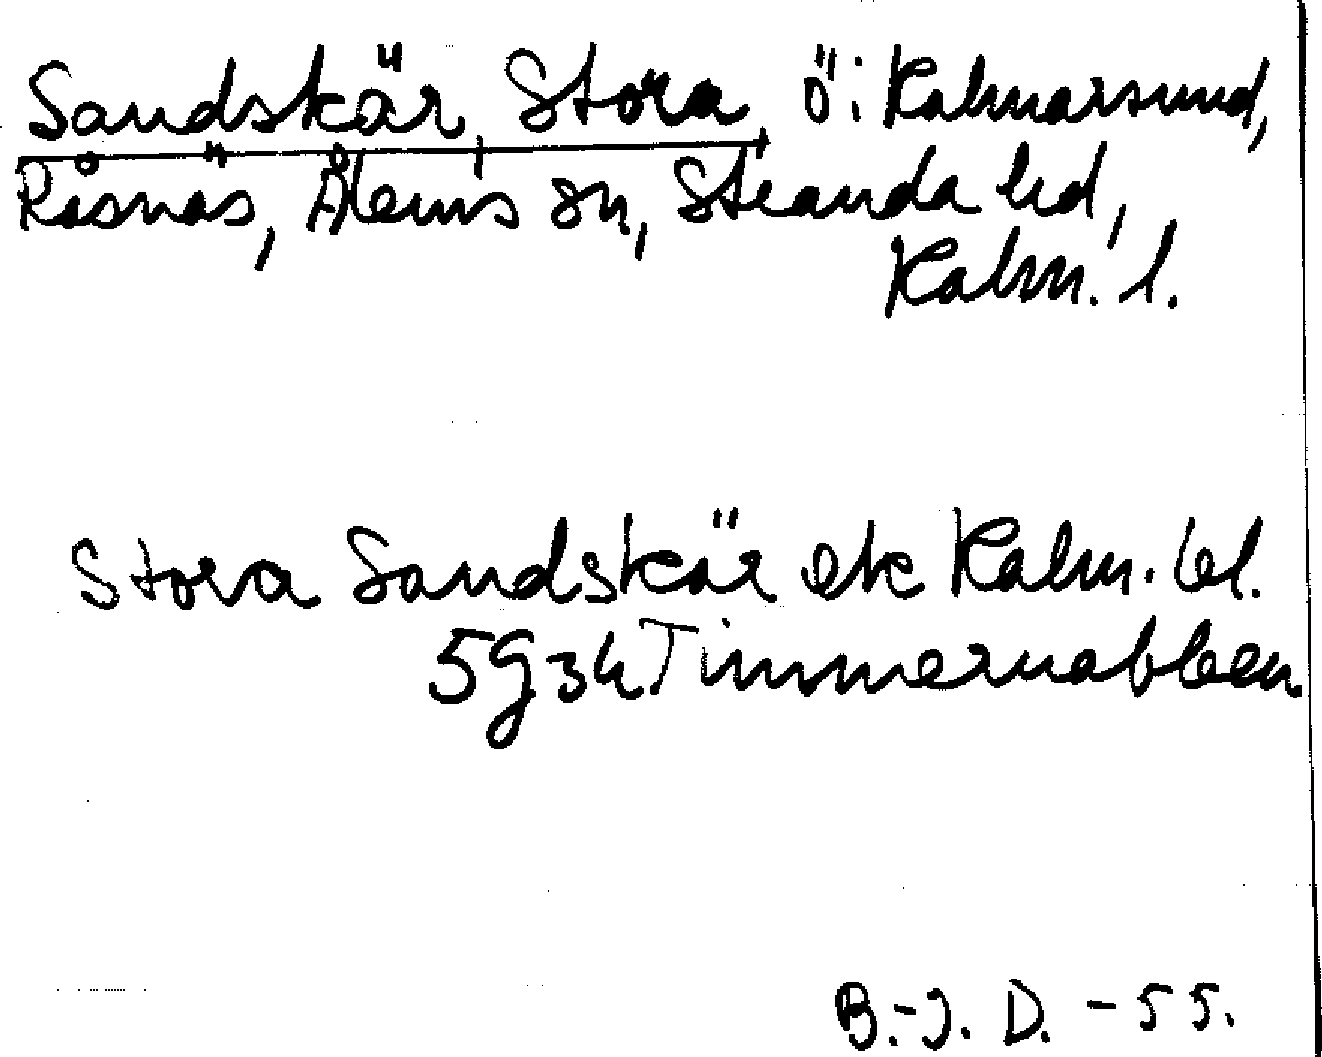 Sandskär, Stora, ö i Kalmarsund,
Råsnäs, Ålems sn, Stranda hd,
Kalm. l.
Stora Sandskär ek Kalm. bl.
5g34 Timmernabben
B.-J. D. -55.